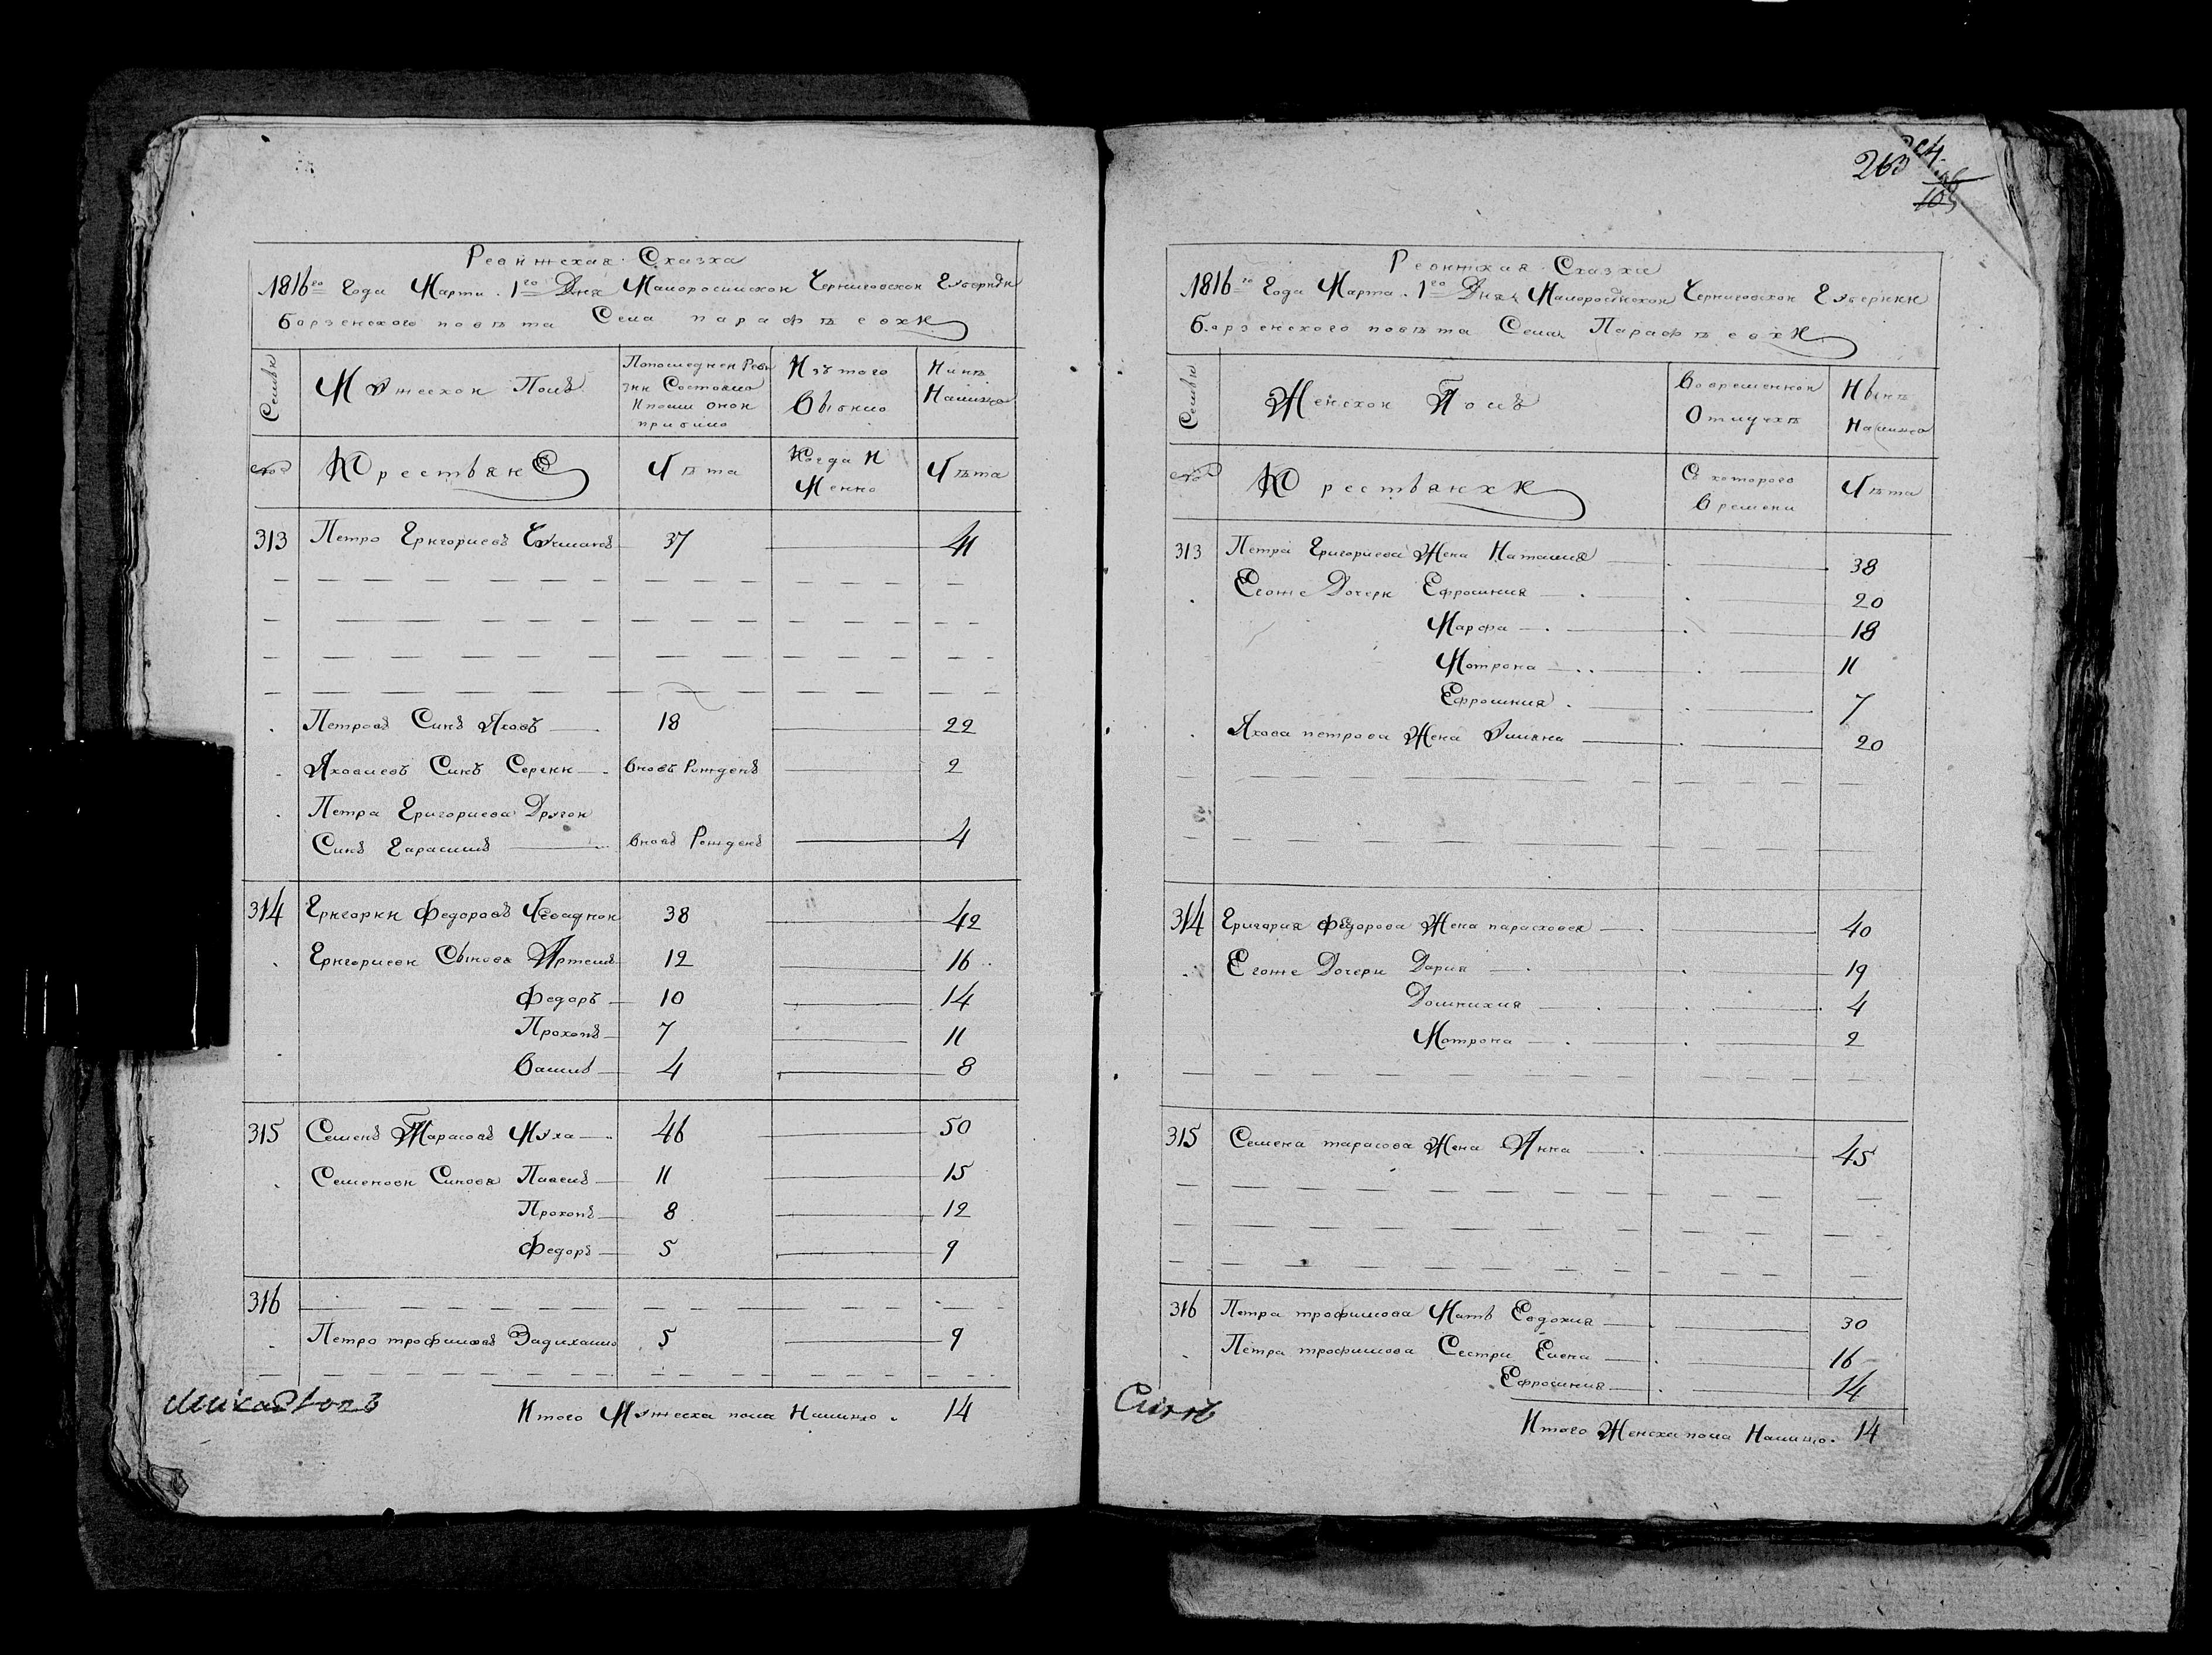 Ревижская Сказка
1816го Года Марта 1го Дня Малоросийской Черниговской Губернии
Борзенского повѣта Села парафѣевки
Семьи
Мужеской Полъ
Попоследней Реви
зии Состояло
И посли оной
прибило
Изътого
Выбило
Нинѣ
Налицо
№
Крестьяне
Лѣта
Когда И
Менно
Лѣта
313 Петро Григориевъ 37 41
Петровъ Синъ Яковъ 18 22
Яковлевъ Синъ Сергии вновь Рожденъ 2
Петра Григориева Другой
Синъ Гарасимъ вновь Рожденъ 4
314 Григории Федоровъ 38 42
Григориеви Сынове Артемъ 12 16
Федоръ 10 14
Прокопъ 7 11
Васил 4 8
315 Семенъ Тарасовъ Муха 46 50
Семенови Синове Павелъ 11 15
Прокопъ 8 12
Федоръ 5 9
316
Петро трофимовъ Задихайло 5 9
Итого Мужеска пола Налицо. 14
263
Ревижкая Сказка
1816го Года Марта 1го Дня Малоросийской Черниговской Губернии
Борзенского повѣта Села Парафѣевки
Семьи
Женской Полъ
Вовременной
Отлучкѣ
Нынѣ
Налицо
№
Крестьянки
С которого
Времени
Лѣта
313 Петра Григориева Жена Наталия 38
Егоже Дочери Ефросиния 20
Марфа 18
Мотрона 11
Ефросиния 7
Якова петрова Жена Улияна 20
314 Григория Федорова Жена парасковея 40
Егоже Дочери Дария 19
Домникия 4
Мотрона 2
315 Семена тарасова Жена Анна 45
316 Петра трофимова Мать Евдокия 30
Петра трофимова Сестри Елена 16
Ефросиния 14
Итого Женска пола Налицо. 14